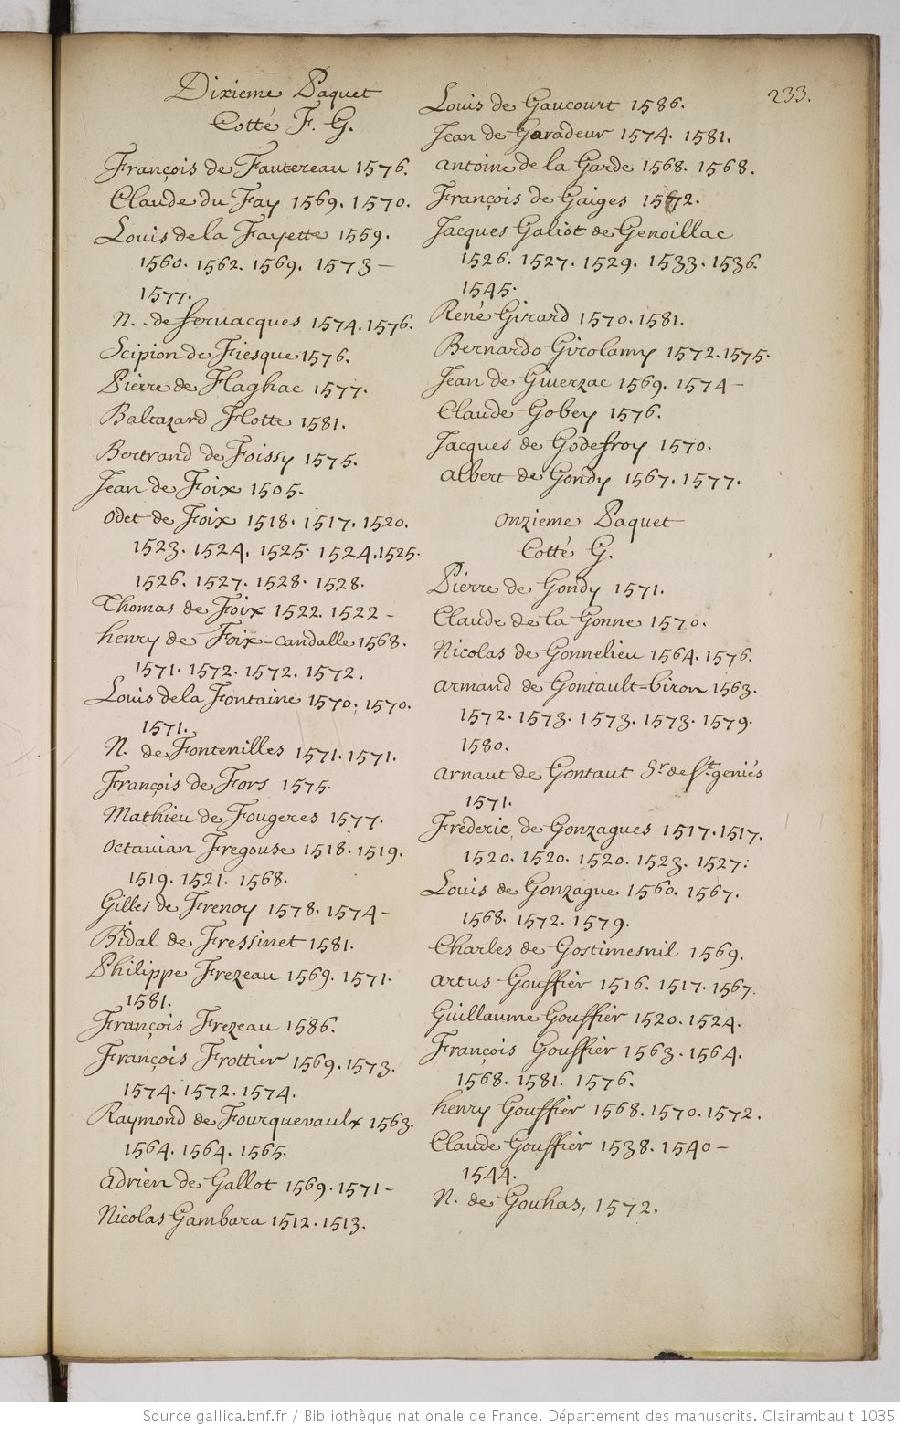 233.
Dixieme Paquet
Cotté F. G.
François de Fautereau 1576.
Claude du Fay 1569. 1570.
Louis de la Fayette 1559.
1560. 1562. 1569. 1573-
1577.
N. . de fervacques 1574. 1576.
Scipion de Fiesque 1576.
Pierre de Flaghac 1577.
Baltazard Flotte 1581.
Bertrand de Foissy 1575.
Jean de Foix 1505.
odet de Foix 1518. 1517. 1520.
1523. 1524. 1525. 1524. 1525.
1526. 1527. 1528. 1528.
Thomas de Foix 1522. 1522-
henry de Foix-candalle 1568.
1571. 1572. 1572. 1572.
Louis dela Fontaine 1570. 1570.
1571.
N. de Fontenilles 1571. 1571.
François de Fors 1575.
Mathieu de Fougeres 1577.
octavian Fregouse 1518. 1519.
1519. 1521. 1568.
Gilles de Frenoy 1578. 1574-
Bidal de Fressinet 1581.
Philippe Frezeau 1569. 1571.
1581.
François Frezeau 1586.
François Frottier 1569. 1573.
1574. 1572. 1574.
Raymond de Fourquevaulx 1563.
1564. 1564. 1565.
adrien de Gallot 1569. 1571-
Nicolas Gambara 1512. 1513.
Louis de Gaucourt 1586.
Jean de Garadeur 1574. 1581.
antoine de la Garde 1568. 1568.
François de Gaiges 1572.
Jacques Galiot de Genoillac
1526. 1527. 1529. 1533. 1536.
1545.
René Girard 1570. 1581.
Bernardo Girolamy 1572. 1575.
Jean de Giverzac 1569. 1574-
Claude Gobey 1576.
Jacques de Godefroy 1570.
albert de Gondy 1567. 1577.
onzieme Paquet
Cotté G.
Pierre de Gondy 1571.
Claude de la Gonne 1570.
Nicolas de Gonnelieu 1564. 1576.
armand de Gontault-biron 1563.
1572. 1573. 1573. 1573. 1579.
1580.
arnaut de Gontaut Sr. de St. geniés
1571.
Fréderic de Gonzagues 1517. 1517.
1520. 1520. 1520. 1523. 1527.
Louis de Gonzague 1560. 1567.
1568. 1572. 1579.
Charles de Gostimesnil 1569.
artus Gouffier 1516. 1517. 1567.
Guillaume Gouffier 1520. 1524.
François Gouffier 1563. 1564.
1568. 1581. 1576.
henry Gouffier 1568. 1570. 1572.
Claude Gouffier 1538. 1540-
1544.
N. de Gouhas, 1572.
Source gallica.bnf.fr / Bibliothèque nationale de France. Département des manuscrits. Clairambault 1035